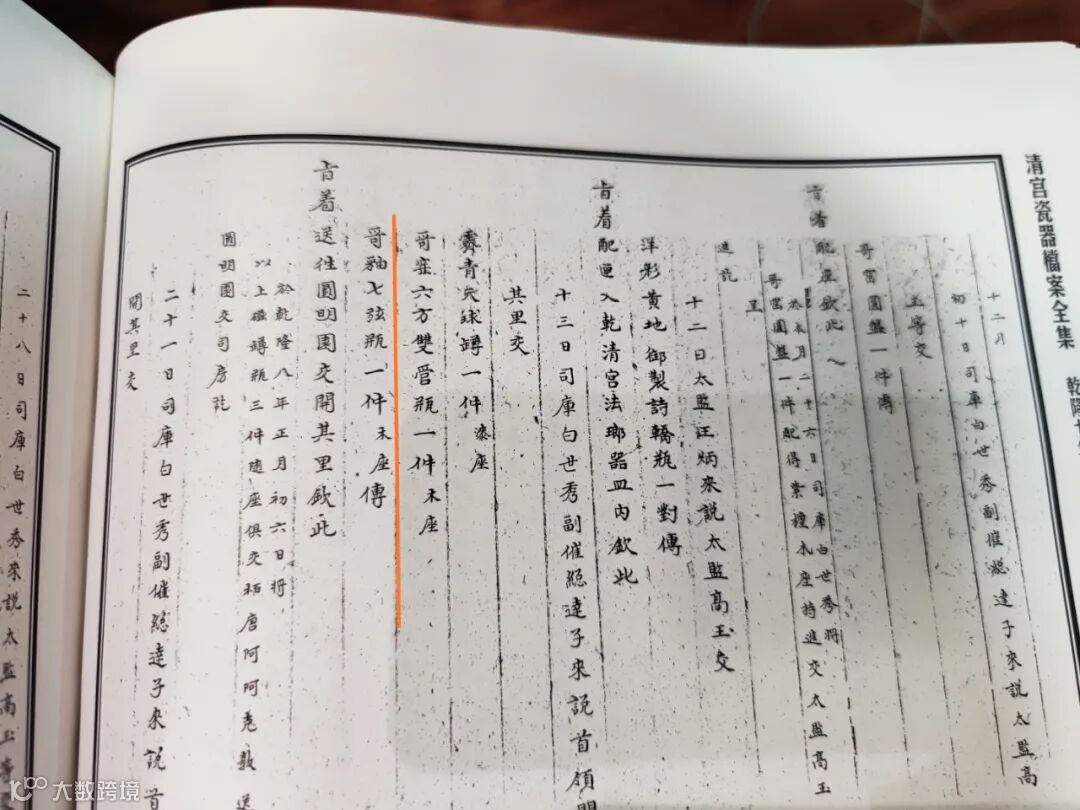 清宫瓷器檔案全集 乾隆
十二月
初十日司庫白世秀副催總達子來說太監高
玉等交
哥窑圓盤一件傳
旨着配座欽此
於本月二十六日司庫白世秀將
哥窑圓盤一件配得紫檀木座持進交太監高玉
呈
進訖
十二日太監汪炳來説太監高玉交
洋彩黄地御製詩轎瓶一對傳
旨着配匣入乾清宮法瑯器皿内欽此
十三日司庫白世秀副催總達子來說首領開
其里交
霽青天球罇一件漆座
哥窑六方雙管瓶一件木座
哥釉七弦瓶一件木座傳
旨着送往圓明園交開其里欽此
於乾隆八年正月初六日將
以上磁罇瓶三件隨座俱交栢唐阿阿羗報送
圓明園交司房訖
二十一日司庫白世秀副催總達子來説首
開其里交
二十八日司庫白世秀來説太監高玉等
大数跨境